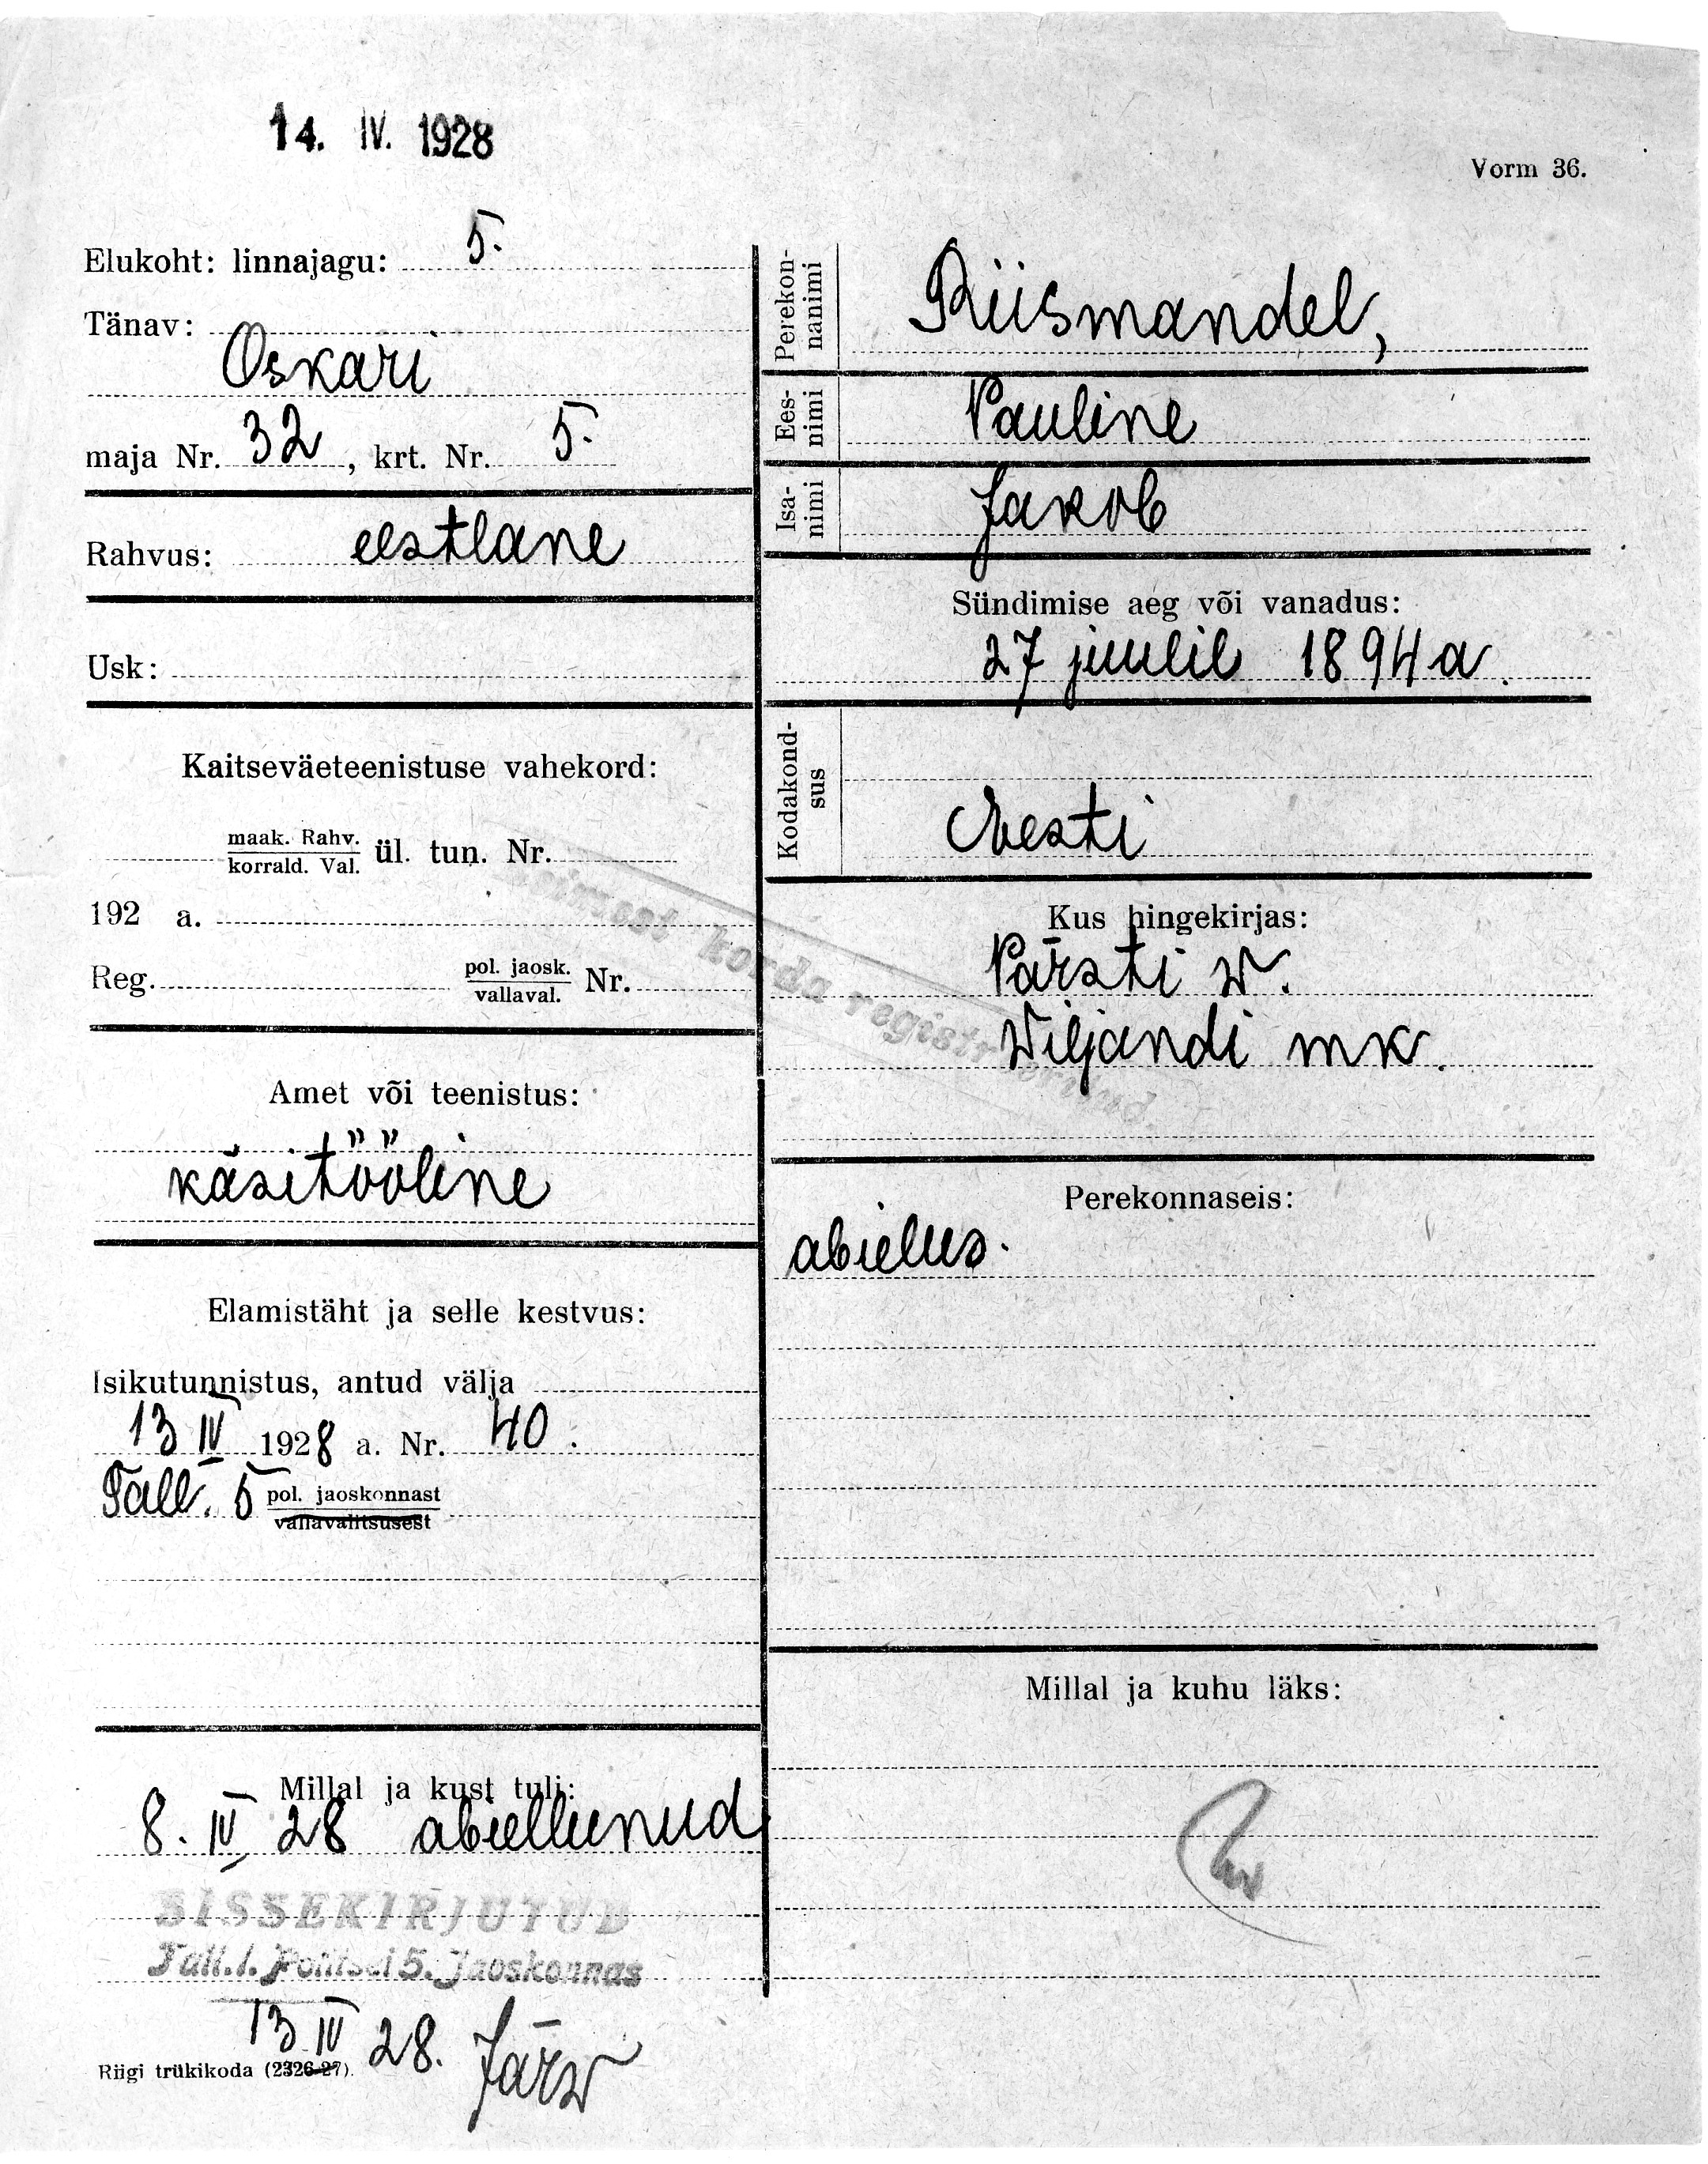 14. IV. 1928
Vorm 36.
Elukoht: linnajagu: 5.
Tänav:
Oskari
maja Nr. 32, krt. Nr. 5.
Rahvus: eestlane
Usk:
Kaitseväeteenistuse vahekord:
maak. Rahv.
korrald. Val. ül. tun. Nr.
192 a.
Reg. pol. jaosk.
vallaval. Nr.
Amet või teenistus:
käsitööline
Elamistäht ja selle kestvus:
Isikutunnistus, antud välja
13 IV 1928 a. Nr. 40.
Tall. 5 pol. jaoskonnast
vallavalitsusest
Millal ja kust tuli:
8. IV 28 abiellunud
SISSEKIRJUTUD
Tall.l. Politsei 5. Jaoskonnas
13 IV 28. Järw
Riigi trükikoda (2326-27).
Perekon-
nanimi
Riismandel,
Ees-
nimi
Pauline
Isa-
nimi
Jakob
Sündimise aeg või vanadus:
27 juulil 1894 a.
Kodakond-
sus
Eesti
Kus hingekirjas:
Pärsti w.
Wiljandi mk.
Esimest korda registreeritud
Perekonnaseis:
abielus.
Millal ja kuhu läks: